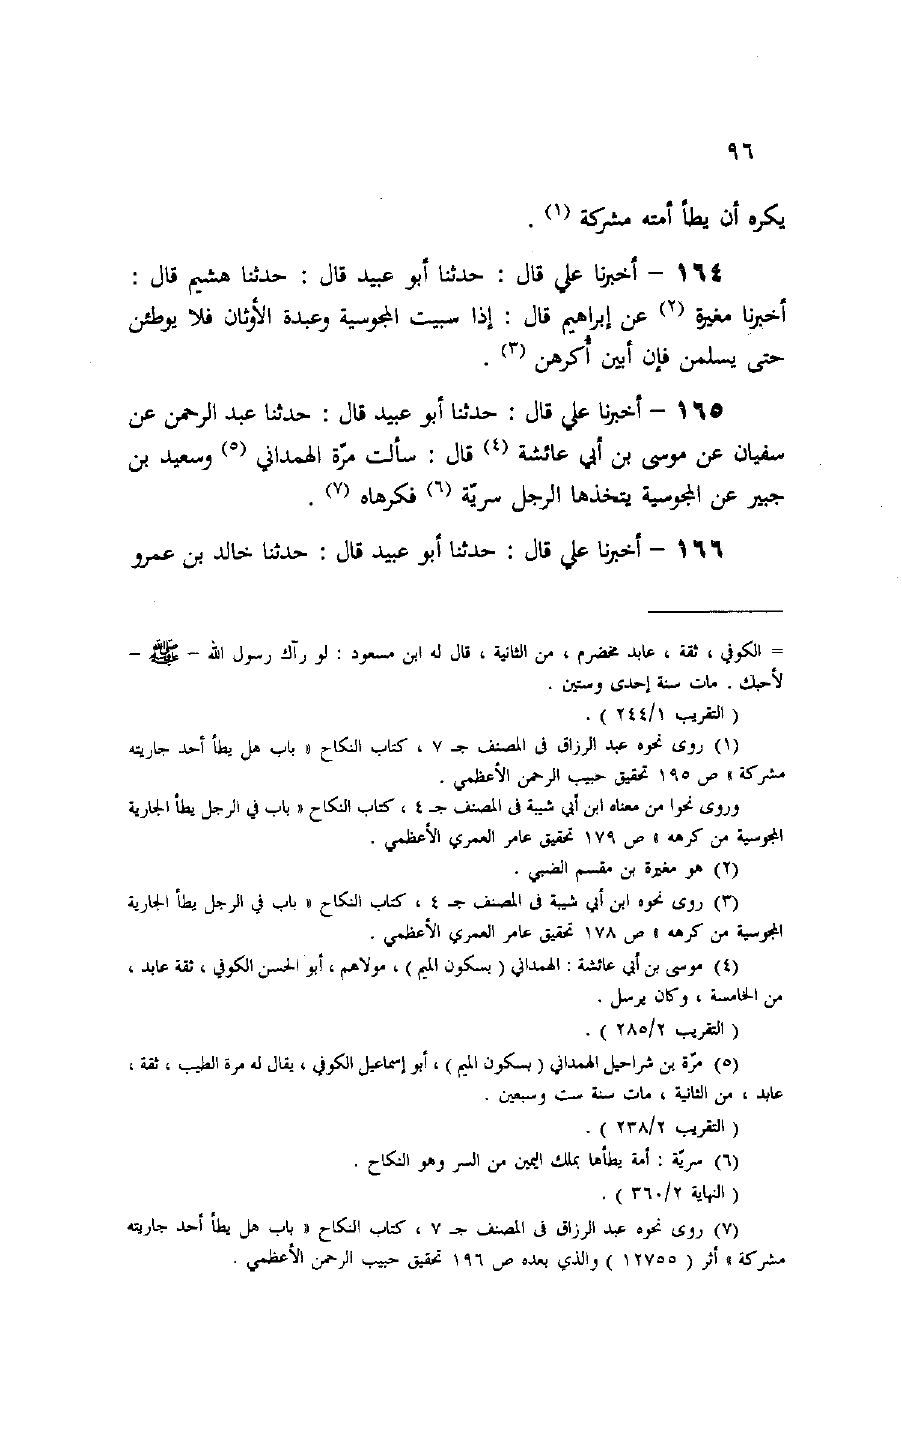 ٩٦
يكره أن يطأ أمته مشركة (١) .
١٦٤ - أخبرنا علي قال : حدثنا أبو عبيد قال : حدثنا هشيم قال :
أخبرنا مغيرة (٢) عن إبراهيم قال : إذا سبيت المجوسية وعبدة الأوثان فلا يوطئن
حتى يسلمن فإن أبين أُكرهن (٣) .
١٦٥ - أخبرنا علي قال : حدثنا أبو عبيد قال : حدثنا عبد الرحمن عن
سفيان عن موسى بن أبي عائشة (٤) قال : سألت مرّة الهمداني (٥) وسعيد بن
جبير عن المجوسية يتخذها الرجل سريّة (٦) فكرهاه (٧) .
١٦٦ - أخبرنا علي قال : حدثنا أبو عبيد قال : حدثنا خالد بن عمرو
= الكوفي ، ثقة ، عابد مخضرم ، من الثانية ، قال له ابن مسعود : لو رآك رسول الله - ﷺ -
لأحبك . مات سنة إحدى وستين .
( التقريب ٢٤٤/١ ) .
(١) روى نحوه عبد الرزاق فى المصنف جـ ٧ ، كتاب النكاح « باب هل يطأ أحد جاريته
مشركة » ص ١٩٥ تحقيق حبيب الرحمن الأعظمي .
وروى نحوا من معناه ابن أبي شيبة فى المصنف جـ ٤ ، كتاب النكاح « باب في الرجل يطأ الجارية
المجوسية من كرهه » ص ١٧٩ تحقيق عامر العمري الأعظمي .
(٢) هو مغيرة بن مقسم الضبي .
(٣) روى نحوه ابن أبي شيبة فى المصنف جـ ٤ ، كتاب النكاح « باب في الرجل يطأ الجارية
المجوسية من كرهه » ص ١٧٨ تحقيق عامر العمري الأعظمي .
(٤) موسى بن أبي عائشة : الهمداني ( بسكون الميم ) ، مولاهم ، أبو الحسن الكوفي ، ثقة عابد ،
من الخامسة ، وكان يرسل .
( التقريب ٢٨٥/٢ ) .
(٥) مرّة بن شراحيل الهمداني ( بسكون الميم ) ، أبو إسماعيل الكوفي ، يقال له مرة الطيب ، ثقة ،
عابد ، من الثانية ، مات سنة ست وسبعين .
( التقريب ٢٣٨/٢ ) .
(٦) سريّة : أمة يطأها بملك اليمين من السر وهو النكاح .
( النهاية ٣٦٠/٢ ) .
(٧) روى نحوه عبد الرزاق فى المصنف جـ ٧ ، كتاب النكاح « باب هل يطأ أحد جاريته
مشركة » أثر ( ١٢٧٥٥ ) والذي بعده ص ١٩٦ تحقيق حبيب الرحمن الأعظمي .